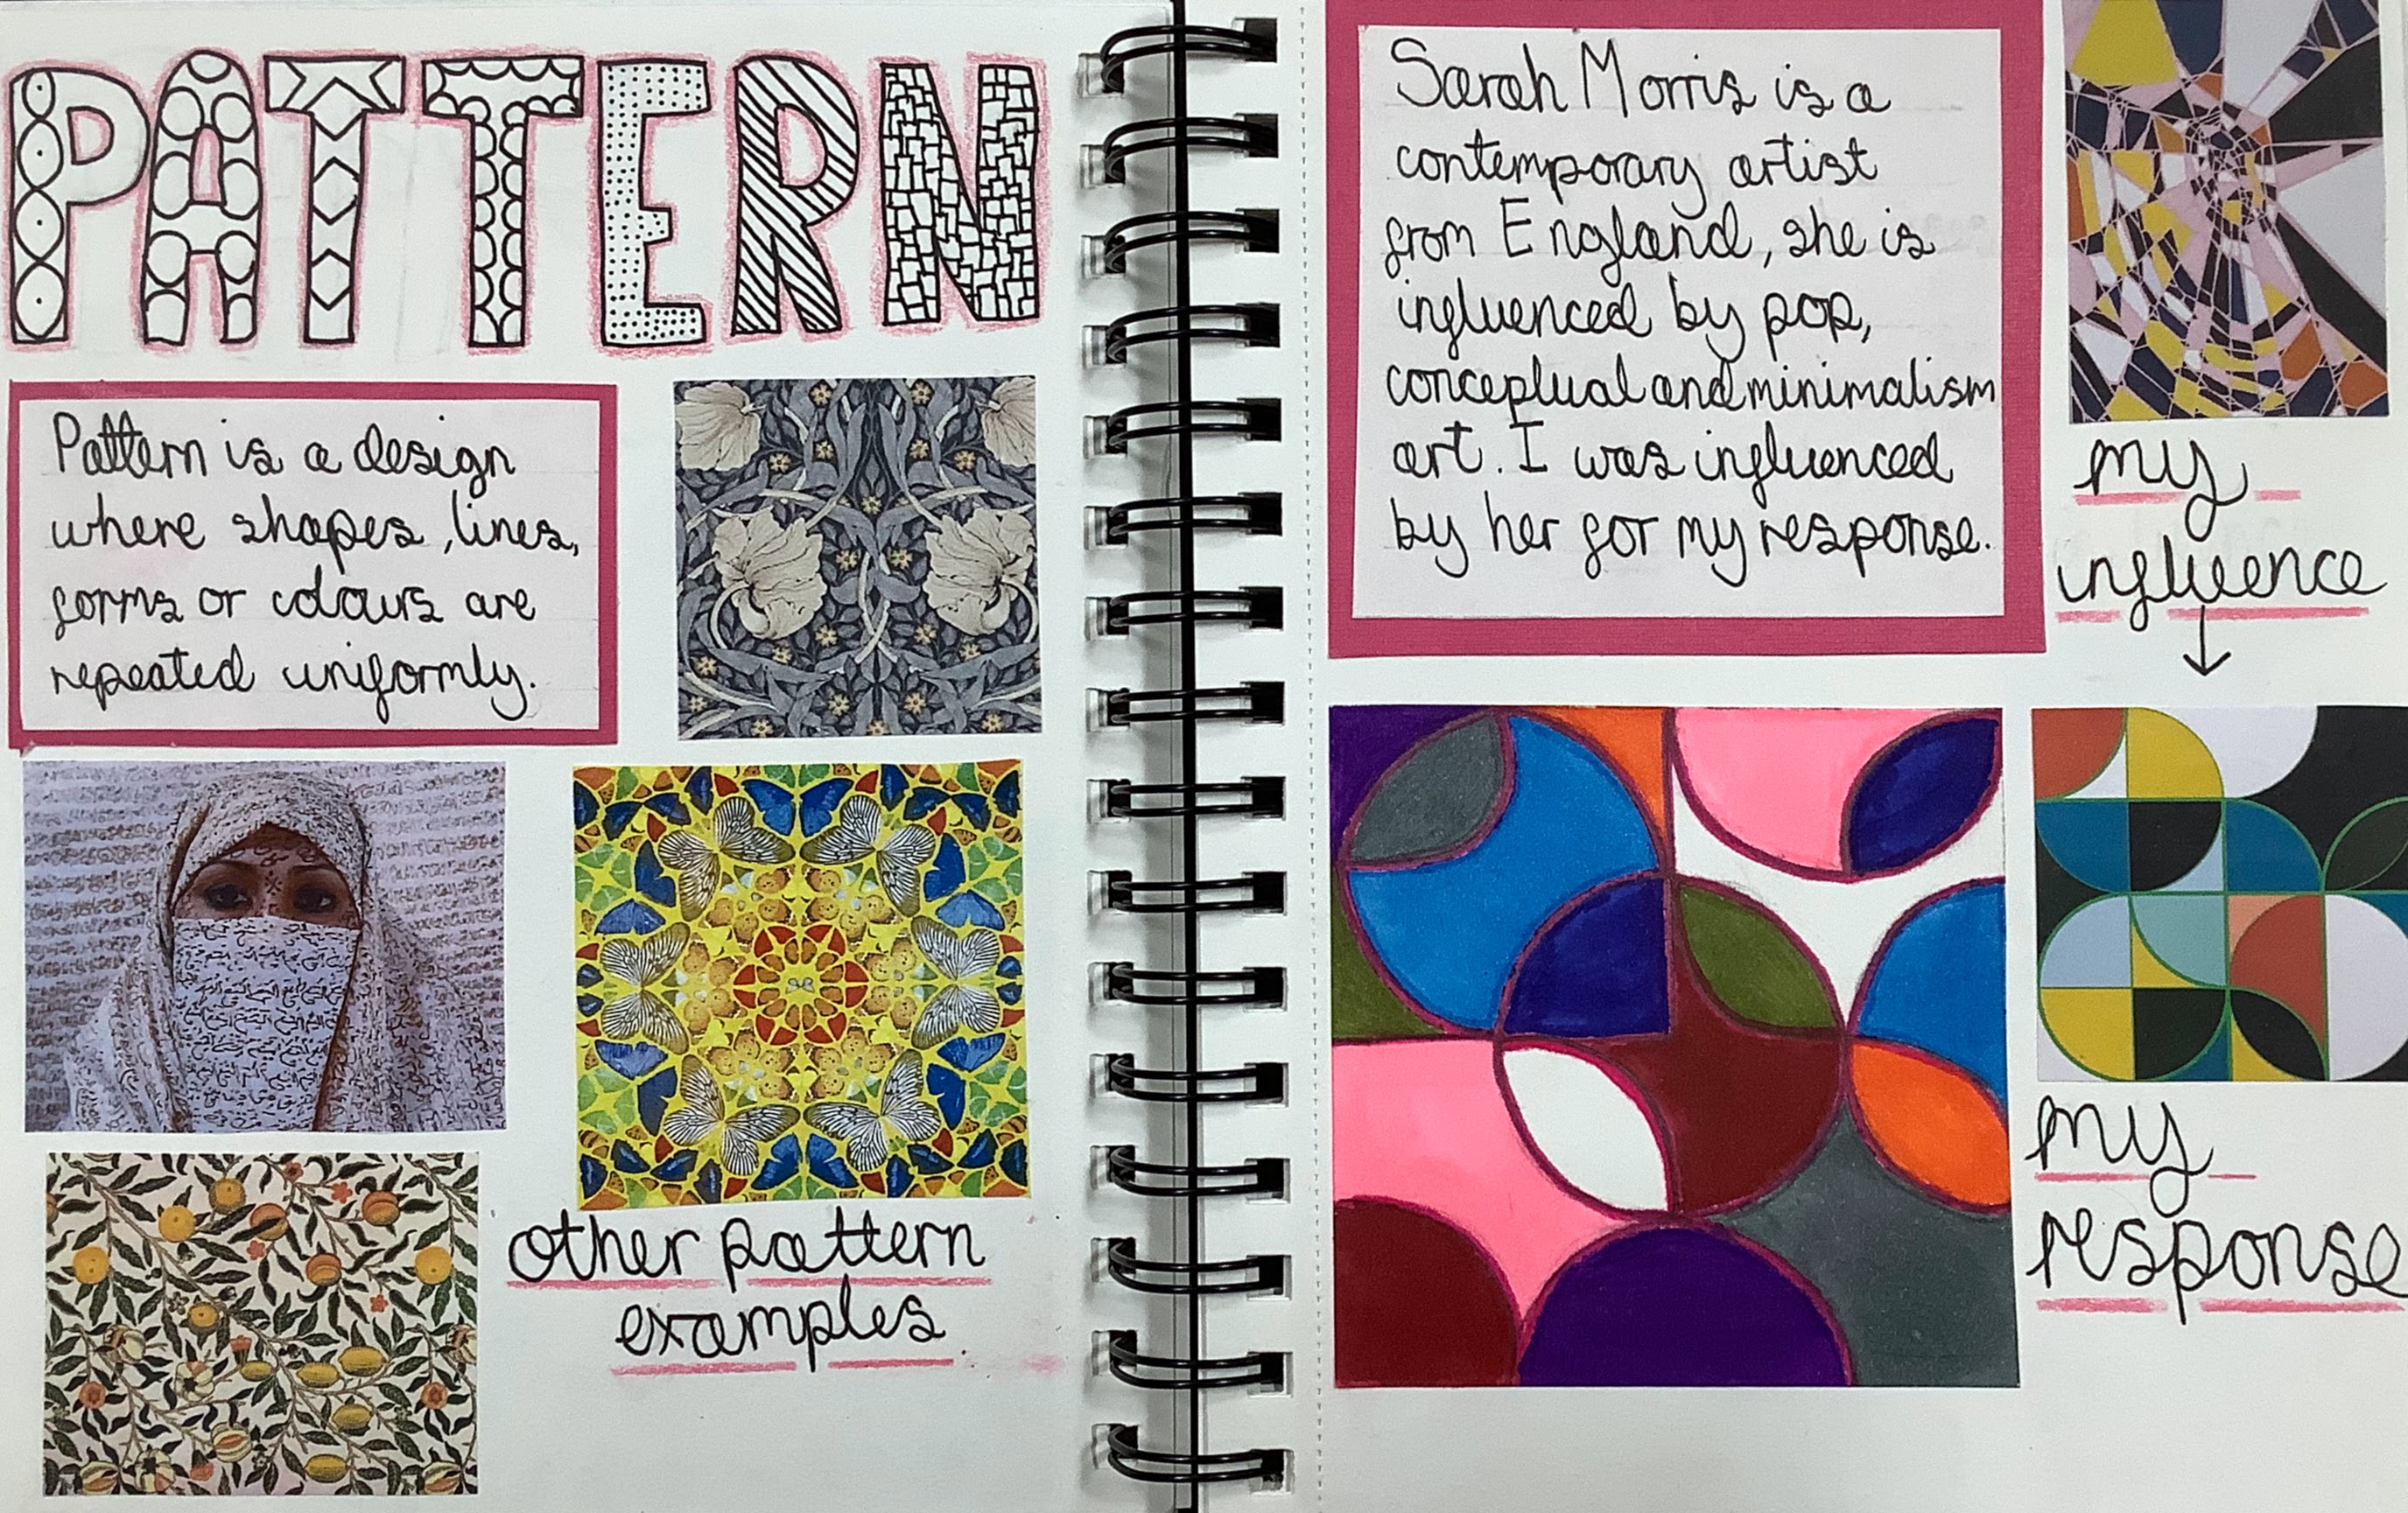 PATTERN
Pattern is a design
where shapes, lines,
forms or colours are
repeated uniformly.
other pattern
examples
Sarah Morris is a
contemporary artist
from England, she is
influenced by pop,
conceptual and minimalism
art. I was influenced
by her for my response.
my
influence
my
response